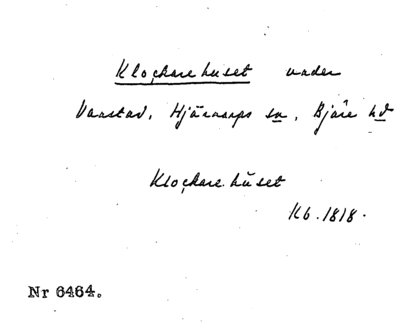 Klockarehuset under
Vanstad, Hjärnarps sn, Bjäre hd
Klockarehuset
Kb. 1818.
Nr 6464.